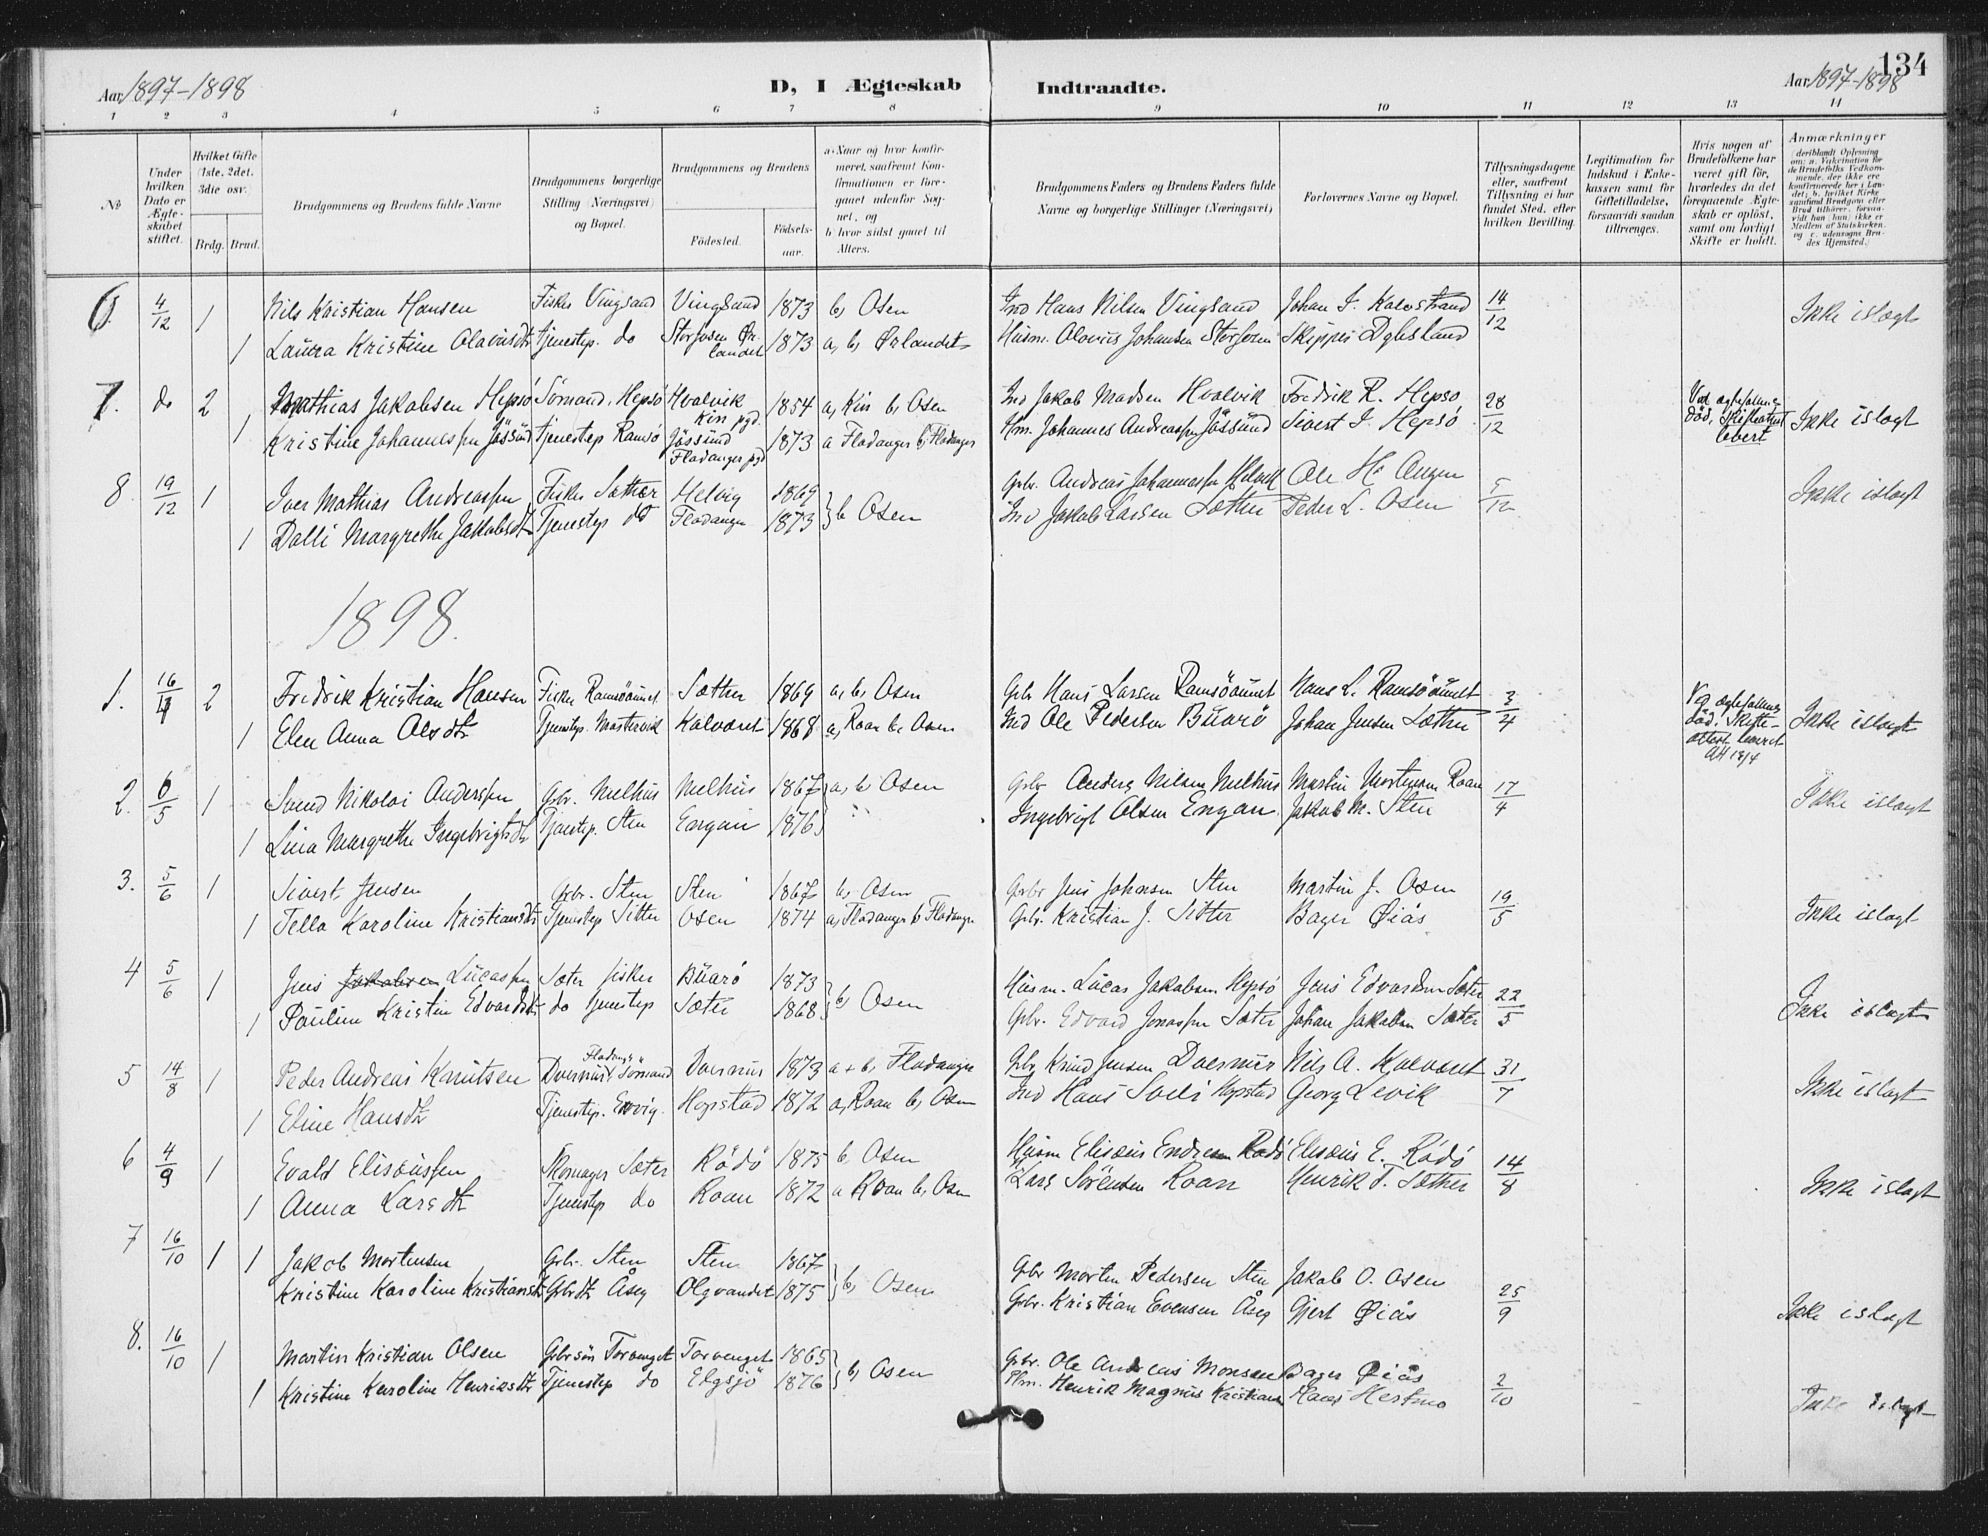 134
Aar 1897-1898 D, I Ægteskab Indtraadte. Aar 1897-1898
1 2 3 4 5 6 7 8 9 10 11 12 13 14
№
Under hvilken Dato er Ægteskabet stiftet.
Hvilket Gifte (1ste, 2det, 3die osv.
Brdg. Brud.
Brudgommens og Brudens fulde Navne
Brudgommens borgerlige Stilling (Næringsvei) og Bopæl.
Brudgommens og Brudens
Fødested.
Fødselsaar.
a. Naar og hvor konfirmeret, saafremt Konfirmationen er foregaaet udenfor Sognet, og
b hvor sidst gaaet til Alters.
Brudgommens Faders og Brudens Faders fulde Navne og borgerlige Stillinger (Næringsvei)
Forlovernes Navne og Bopæl.
Tillysningsdagene eller, saafremt Tillysning ei har fundet Sted, efter hvilken Bevilling.
Legitimation for Indskud i Enkekassen samt for Giftetilladelse, forsaavidt saadan tiltrænges.
Hvis nogen af Brudefolkene har været gift før, hvorledes da det foregaaende Ægteskab er opløst, samt om lovligt Skifte er holdt.
Anmærkninger (deriblandt Oplysning om: a. Vakcination for de Brudefolks Vedkommende, der ikke ere konfirmerede her i Landet; b. hvilket Kirkesamfund Brudgom eller Brud tilhører, forsaavidt han (hun) ikke er Medlem af Statskirken, og c. udensogns Brudes Hjemsted.)
6. 4/12 1 Nils Kristian Hansen Fisker Vingsand Vingsand 1873 b, Osen Ind Hans Nilsen Vingsand Johan J. Kalvstrand 14/12 Ikke islægt
1 Laura Kristine Olaviusdtr Tjenestep. do Storfosen Ørlandet 1873 a, b, Ørlandet Husm. Olavius Johansen Storfosen Skipper Dybsland
7. do 2 Mathias Jakobsen Hepsö Sömand. Hepsö Hvalvik Kin pgd. 1854 a, Kin b, Osen Ind Jakob Madsen Hvalvik Fredrik R. Hepsö 28/12 Ved ægtefællens död, Skifteattest levert Ikke islægt
1 Kristine Johannesen Jössund Tjenestep Ramsö Jössund Fladanger pgd 1873 a Fladanger b, Fladanger Hm. Johannes Andreassen Jössund Sivert J. Hepsö
8. 19/12 1 Iver Mathias Andreassen Fisker Sæther Helvig 1869 } b Osen Gbr. Andreas Johannessen Ole H. Angen 5/12 Ikke islægt
1 Dalli Margrethe Jakobsdtr Tjenestep do Fladanger 1873 Ind Jakob Larsen Sæther Peder L. Osen
1898.
1. 16/4 2 Fredrik Kristian Hansen Fisker Ramsöaunet Sæther 1869 a, b, Osen Gbr Hans Larsen Ramsöaunet Hans L. Ramsöaunet 3/4 Ved ægtefællens död. Skifteattest leveret 13/4 Ikke islægt
1 Elen Anna Olsdtr Tjenestep. Mastervik Kalvaret 1868 a, Roan b, Osen Ind Ole Pedersen Buarö Johan Jensen Sæther
2. 6/5 1 Svend Nikolai Anderssen Gbr. Melhus Melhus 1867 } a, b Osen Gbr Anders Nilsen Melhus Martin Mortensen Roan 17/4 Ikke islægt
1 Lina Margrethe Ingebrigtsdtr Tjenestep. Sten Engan 1876 Ingebrigt Olsen Engan Jakob M. Sten
3. 5/6 1 Sivert Jensen Gbr. Sten Sten 1867 b, Osen Gbr Jens Johnsen Sten Martin J. Osen 19/5 Ikke islægt
1 Tella Karoline Kristiansdtr Tjenestep Sitter Osen 1874 a, Fladanger b, Fladanger Gbr. Kristian J. Sitter Bager Øiås
4 5/6 1 Jens Jakobsen Lucassen Sæter fisker Buarö 1873 } b, Osen Husm. Lucas Jakobsen Hepsö Jens Edvardsen Sæter 22/5 Ikke islægt
1 Pauline Kristine Edvardsdtr do tjenestep Sæter 1868 Gbr. Edvard Jonassen Sæter Johan Jakobsen Sæter
5 14/8 1 Peder Andreas Knutsen Fladanger Sömand 1873 a + b, Fladanger Gbr Knud Jensen Nils A. Kalvaret 31/7 Ikke islægt
1 Eline Hansdtr Tjenestep. Hopstad 1872 a, Roan b, Osen Ind Hans Hopstad Georg Levik
6 4/9 1 Evald Elisæussen Skomager Sæter Rödö 1875 b, Osen Husm Elisæus Endresen Rödö Elisæus E. Rödö 14/8 Ikke islægt
1 Anna Larsdtr Tjenestep do Roan 1872 a Roan b, Osen Lars Sörensen Roan Henrik T. Sæther
7 16/10 1 1 Jakob Mortensen Gbr. Sten Sten 1867 } b, Osen Gbr Morten Pedersen Sten Jakob O. Osen 25/9 Ikke islægt
Kristine Karoline Kristiansdtr Gbrdtr Åseg Olgvandet 1875 Gbr. Kristian Evensen Åseg Gjert Øiås
8. 16/10 1 Martin Kristian Olsen Gbrsön Torvenget Torvenget 1865 } b, Osen Gbr. Ole Andreas Monsen Bager Øiås 2/10 Ikke islægt
1 Kristine Karoline Henriksdtr Tjenestep do Elgsjö 1876 Hm. Henrik Magnus Kristiansen Hans Hestmo